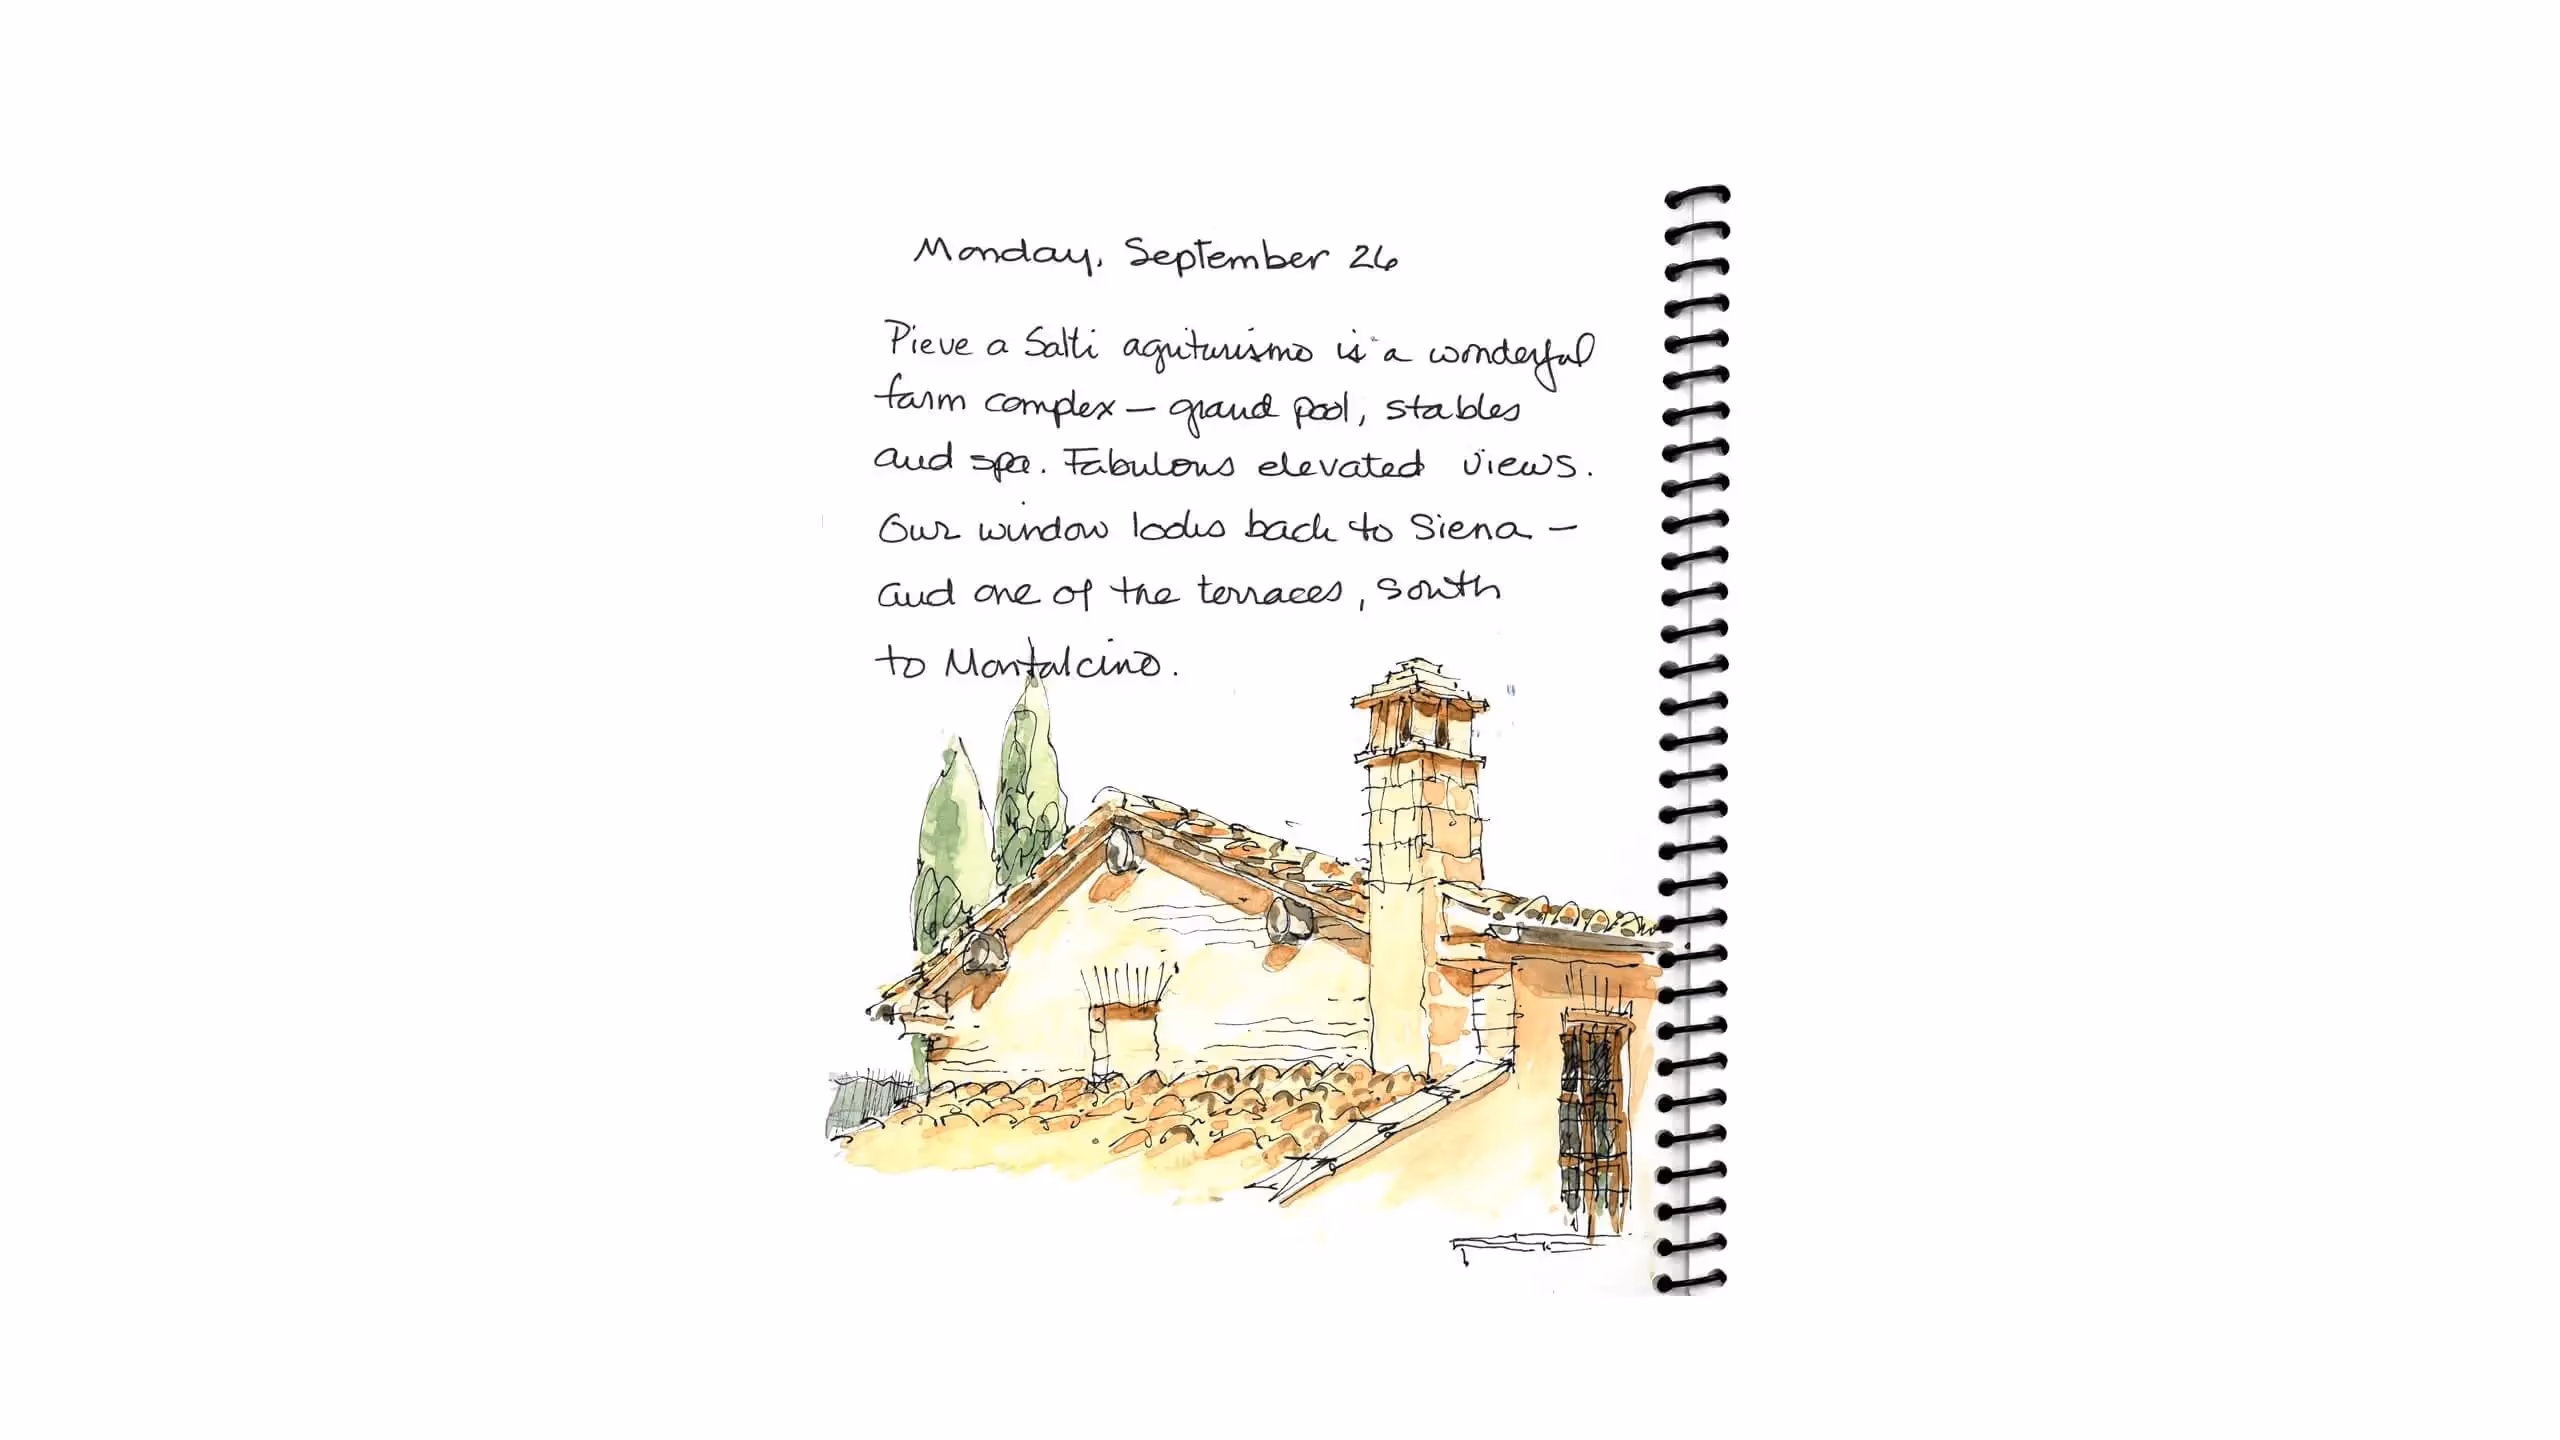 Monday, September 26
Pieve a Salti agriturismo is a wonderful
farm complex – grand pool, stables
and spa. Fabulous elevated views.
Our window looks back to Siena –
and one of the terraces, south
to Montalcino.